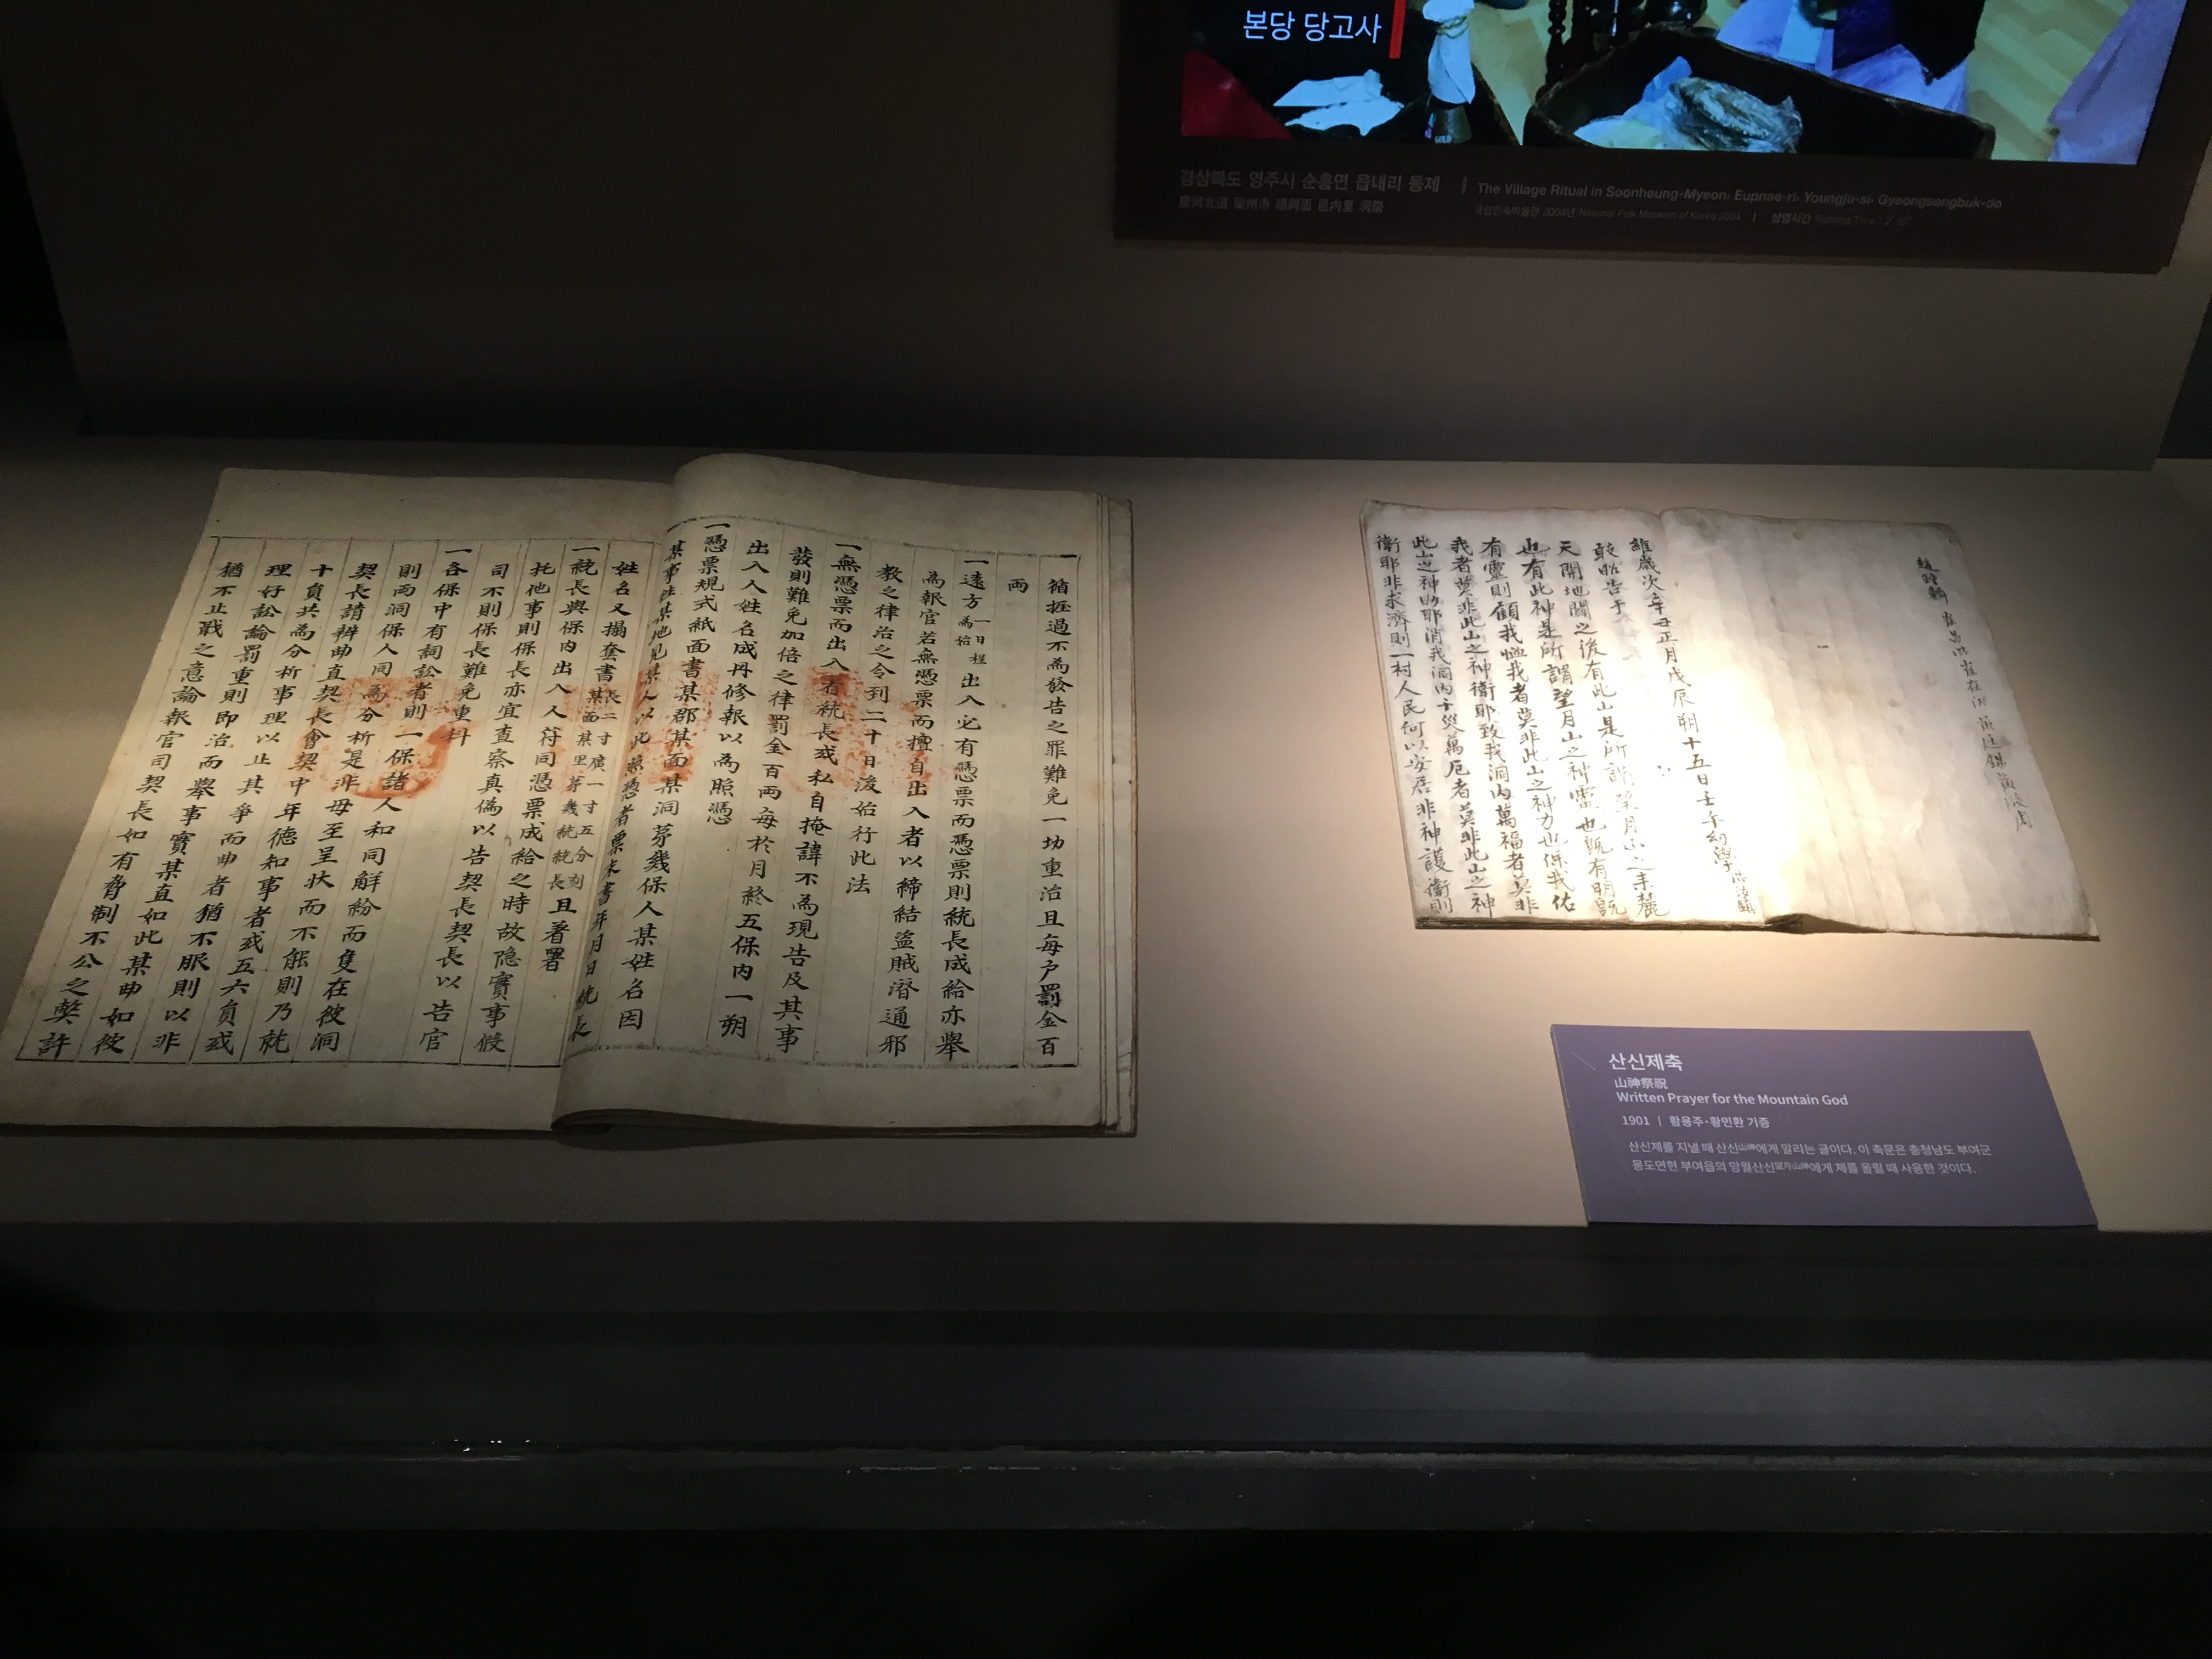 본당 당고사
경상북도 영주시 순흥면 읍내리 동제
慶尙北道 榮州市 順興面 邑內里 洞祭
The Village Ritual in Soonheung-Myeon, Eupnae-ri, Youngju-si, Gyeongsangbuk-do
국립민속박물관 2004년 National Folk Museum of Korea 2004 | 상영시간 Running Time :
一循捱過不為發告之罪難免一切重治且每戶罰金百
両
一遠方一日程為給出入必有憑票而憑票則統長成給亦舉
為報官若無憑票而擅自出入者以締結盜賊潛通邪
教之律治之令到二十日後始行此法
一無憑票而出入者統長或私自掩諱不為現告及其事
發則難免加倍之律罰金百両每於月終五保内一朔
出入人姓名成丹修報以為照憑
一憑票規式紙面書某郡某面某洞茅幾保人某姓名因
某事往某地見某人以此為憑者票末書年月日統長
姓名又搨套書長二寸廣一寸五分刻某面某里茅幾統統長且著署
一統長與保内出入人符同憑票成給之時故隐實事假
托他事則保長亦宜查察真偽以告契長契長以告官
司不則保長難免重科
一各保中有詞訟者則一保諸人和同解紛而隻在彼洞
則両洞保人同為分析是非毋至呈状而不能則乃就
契長請辨曲直契長會契中年德知事者或五六員或
十員共為分析事理以止其爭而曲者猶不服則以非
理好訟論罰重則即治而舉事實某直如此某曲如彼
猶不止戢之意論報官司契長如有脅制不公之獘許
維歲次辛丑正月戊辰朔十五日壬午幼學
敢昭告于
天開地闢之後有此山是所謂望月山之末麓
也有此神是所謂望月山之神靈也旣有明旣
有靈則顧我恤我者莫非此山之神力也保我佑
我者莫非此山之神衛耶致我洞内萬福者莫非
此山之神助耶消我洞内千災萬厄者莫非此山之神
衛耶非求濟則一村人民何以安居非神護衛則
산신제축
山神祭祝
Written Prayer for the Mountain God
1901 | 황용주·황민환 기증
산신제를 지낼 때 산신山神에게 알리는 글이다. 이 축문은 충청남도 부여군
몽도면현 부여읍의 망월산신望月山神에게 제를 올릴 때 사용한 것이다.